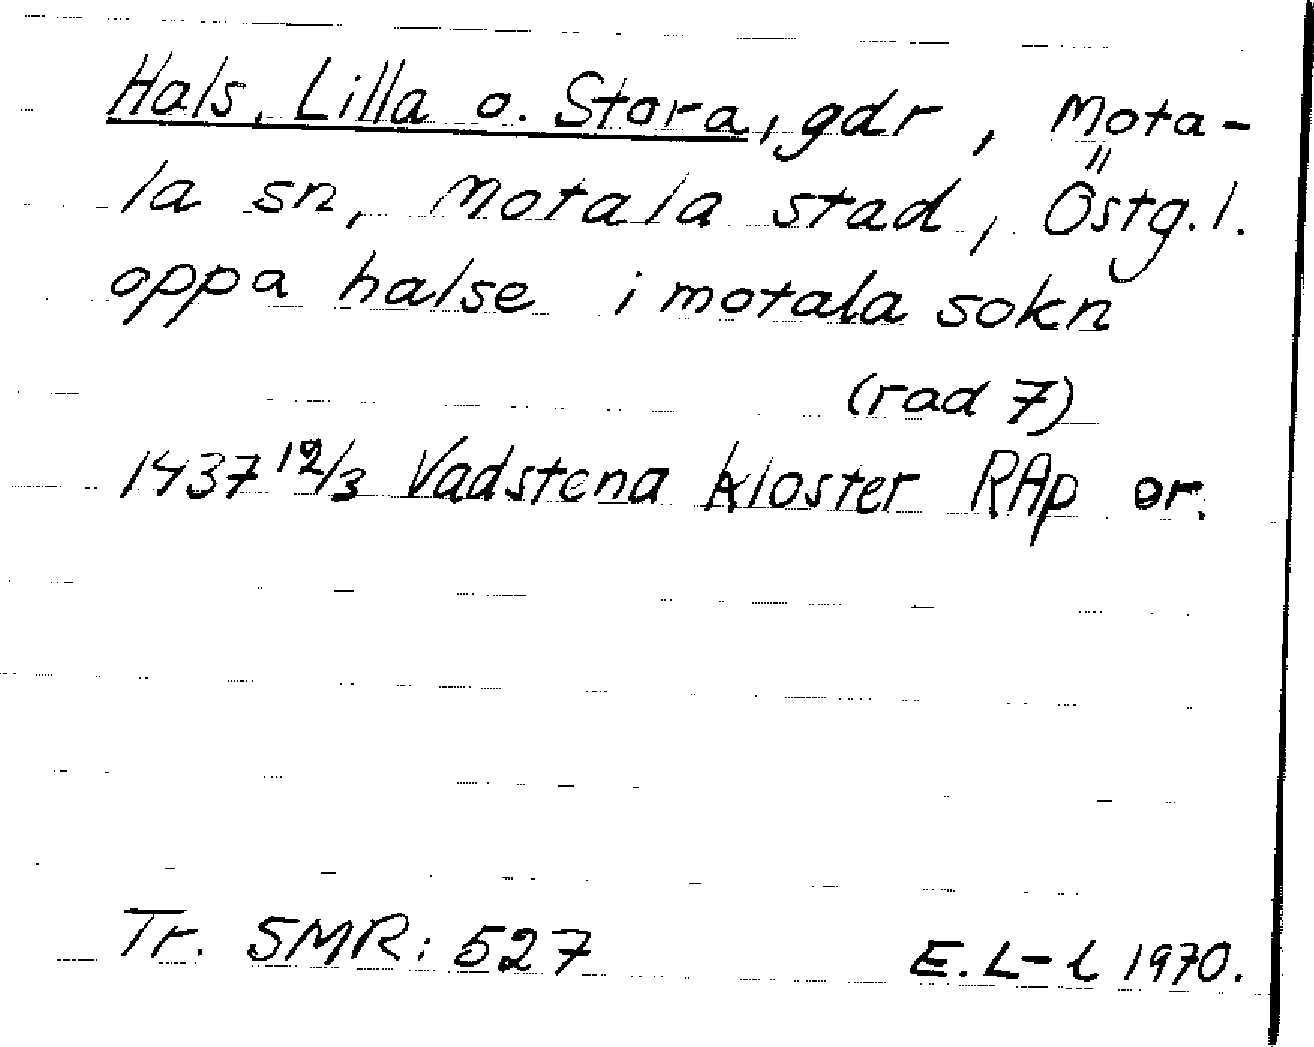 Hals, Lilla o. Stora, gdr, Mota-
la sn, Motala stad, Östg.l.
oppa halse i motala sokn
(rad 7)
1437 12/3 Vadstena kloster RAp or.
Tr. SMR: 527 E. L-l 1970.